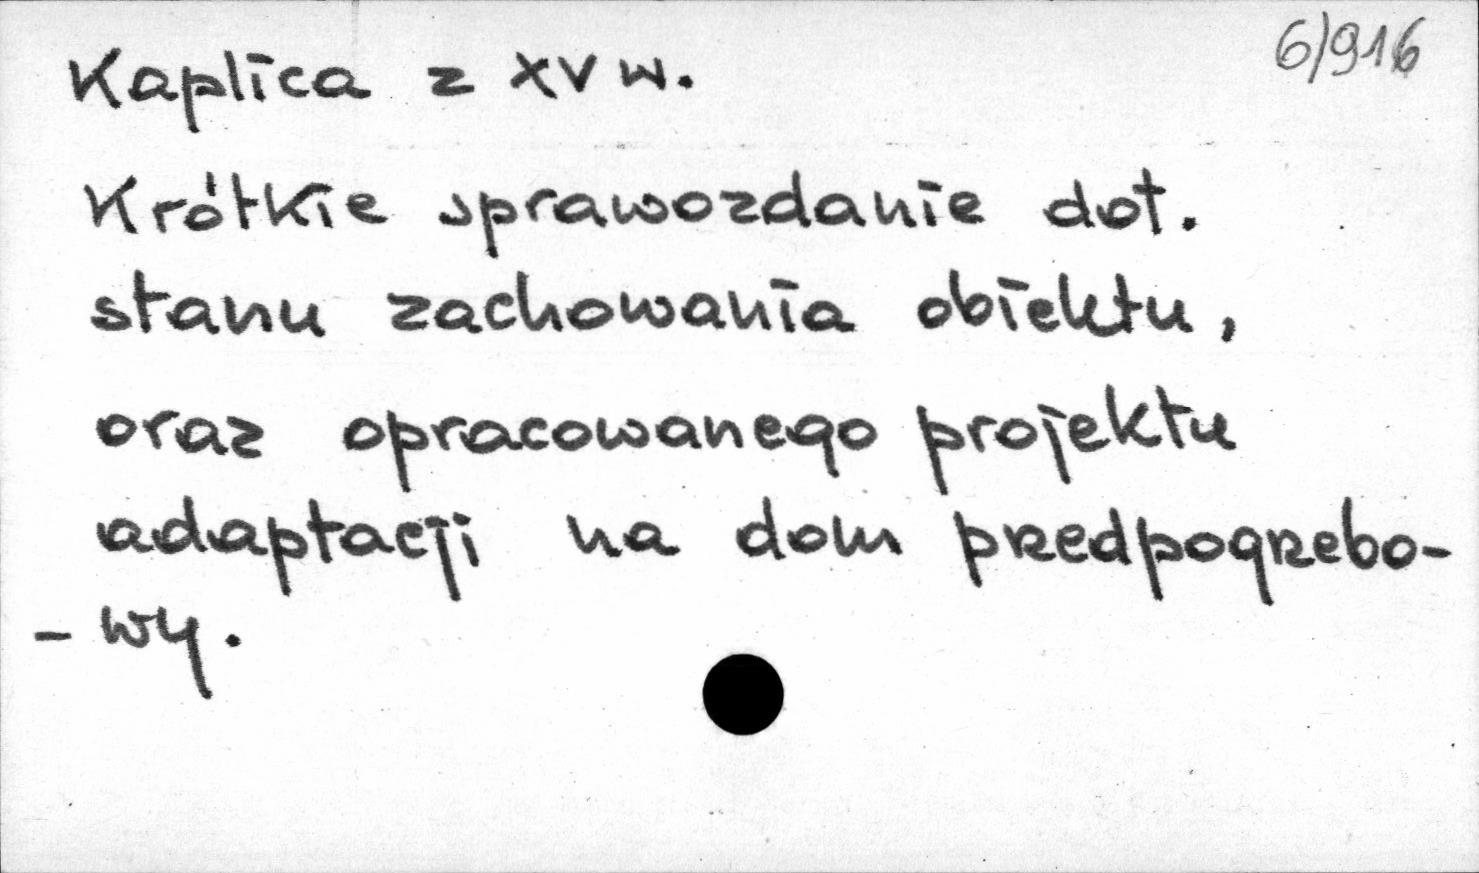 6/916
Kaplica z XV w.
Krótkie sprawozdanie dot.
stanu zachowania obiektu,
oraz opracowanego projektu
adaptacji na dom przedpogrzebo-
- wy.